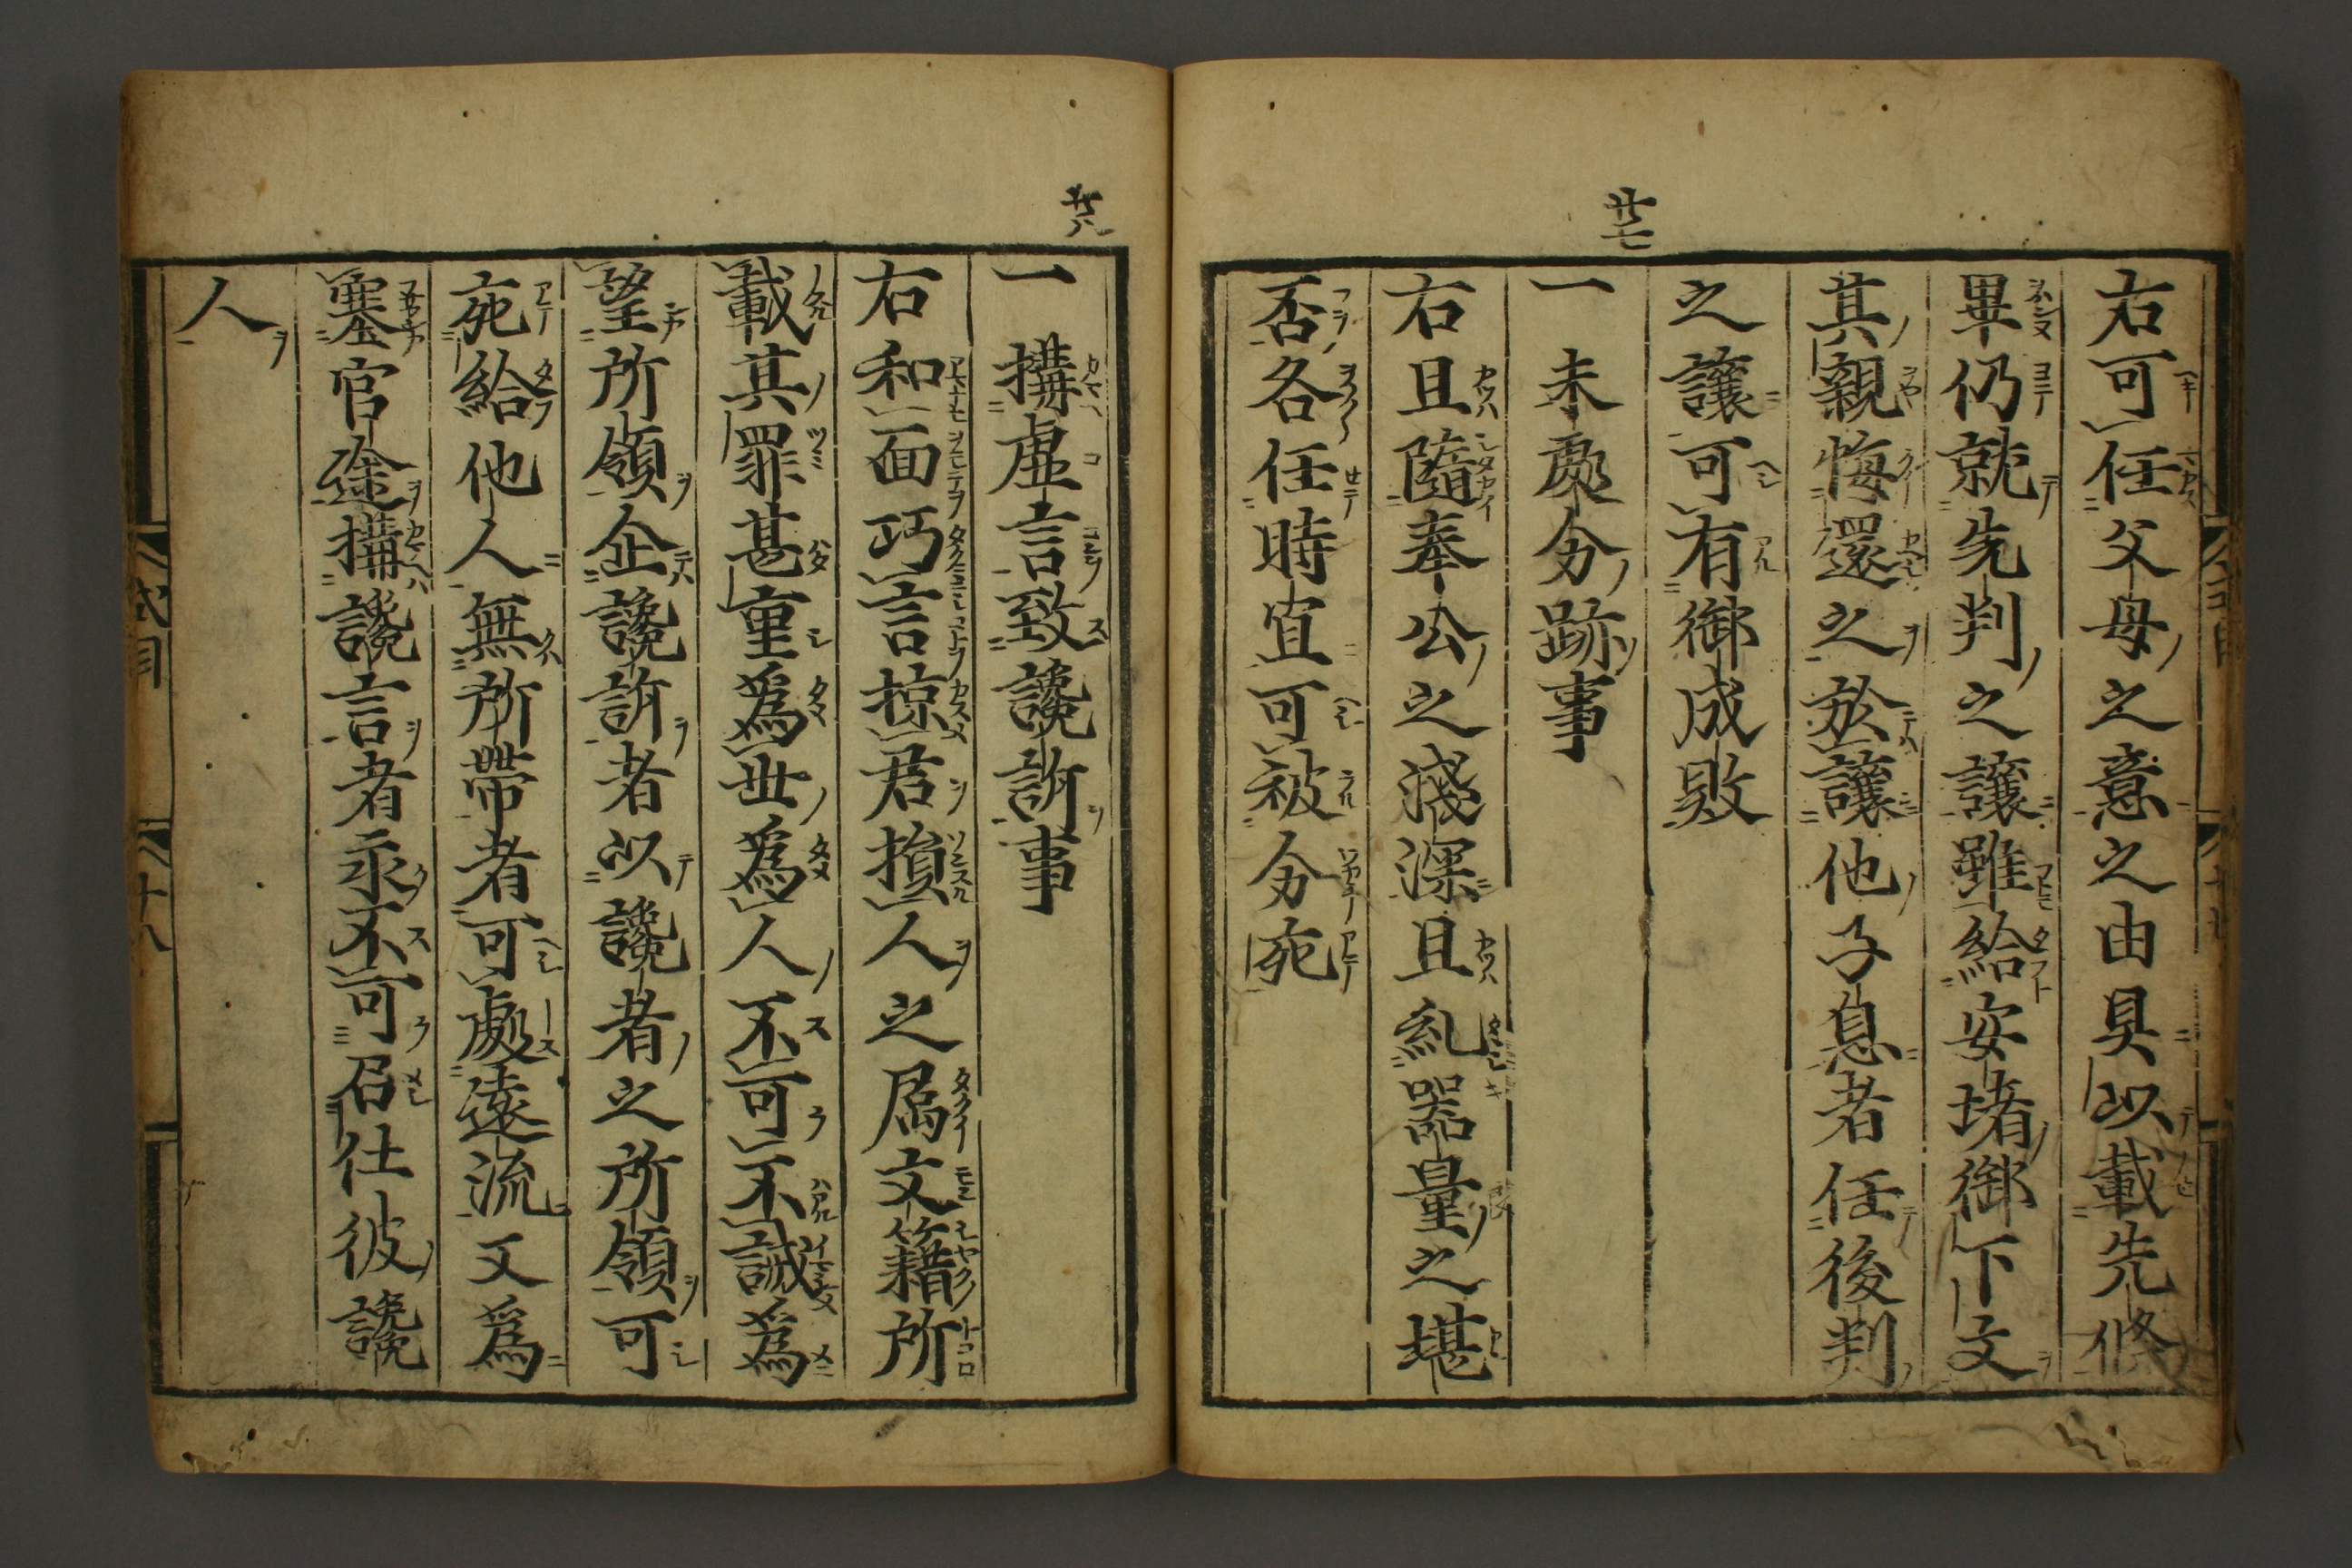 廿七
右可任父母之意之由具以載先條
畢仍就先判之讓雖給安堵御下文
其親悔還之於讓他子息者任後判
之讓可有御成敗
一 未處分跡事
右且隨奉公之淺深且糺器量之堪
否各任時宜可被分宛
廿八
一 搆虛言致讒訴事
右和面巧言掠君損人之属文籍所
載其罪甚重爲世爲人不可不誡爲
望所領企讒訴者以讒者之所領可
宛給他人無所帶者可處遠流又爲
塞官途搆讒言者永不可召仕彼讒
人
式目 十八